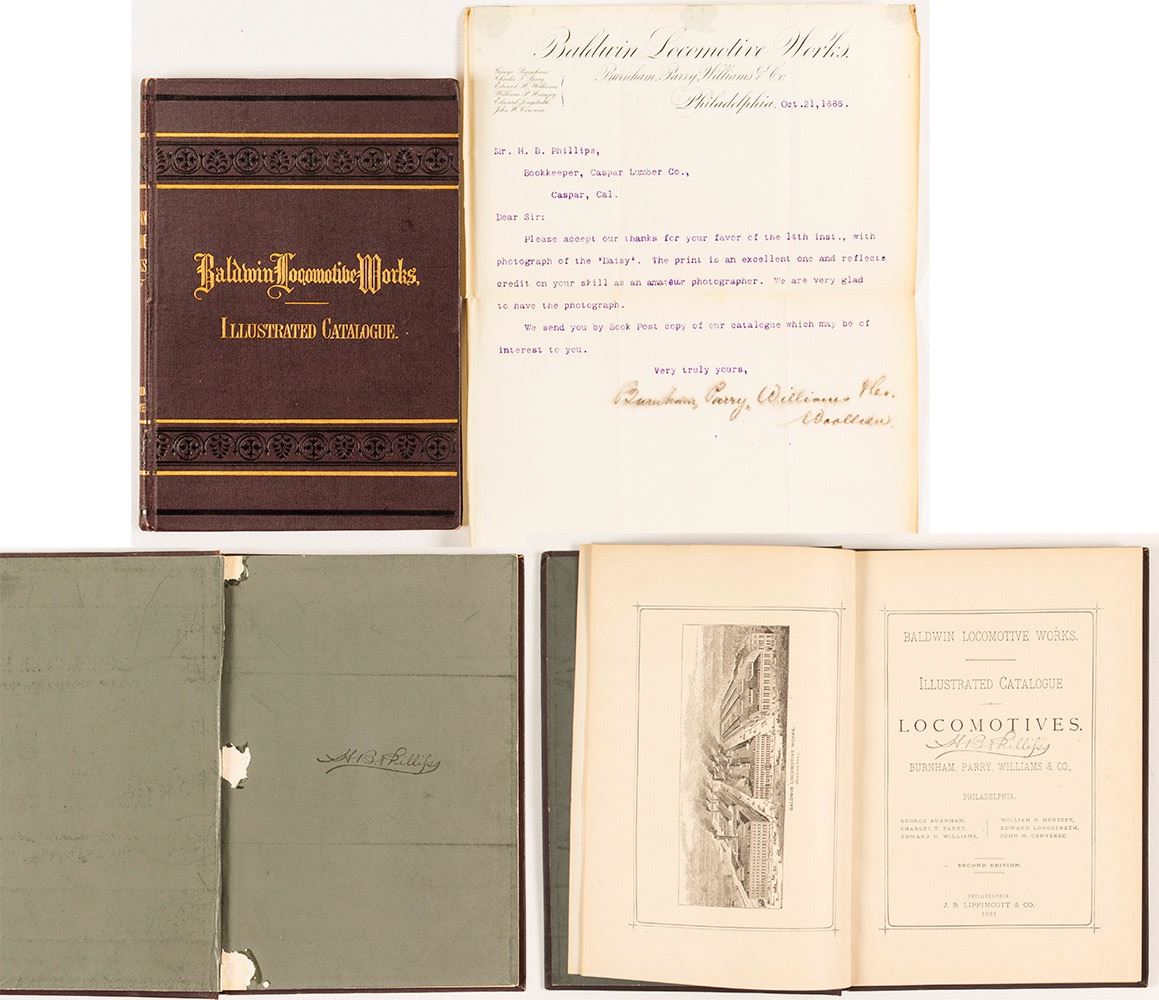 Baldwin Locomotive Works,
ILLUSTRATED CATALOGUE.
Baldwin Locomotive Works.
Burnham, Parry, Williams & Co.
George Burnham
Charles T. Parry
Edward H. Williams
William P. Henszey
Edward Longstreth
John H. Converse
Philadelphia, Oct.21,1885.
Mr. H. B. Phillips,
Bookkeeper, Caspar Lumber Co.,
Caspar, Cal.
Dear Sir:
Please accept our thanks for your favor of the 14th inst., with
photograph of the "Daisy". The print is an excellent one and reflects
credit on your skill as an amateur photographer. We are very glad
to have the photograph.
We send you by Book Post copy of our catalogue which may be of
interest to you.
Very truly yours,
Burnham, Parry, Williams & Co.
H. B. Phillips
BALDWIN LOCOMOTIVE WORKS.
BALDWIN LOCOMOTIVE WORKS.
ILLUSTRATED CATALOGUE
OF
LOCOMOTIVES.
H. B. Phillips
BURNHAM, PARRY, WILLIAMS & CO.,
PHILADELPHIA.
GEORGE BURNHAM, WILLIAM P. HENSZEY,
CHARLES T. PARRY, EDWARD LONGSTRETH,
EDWARD H. WILLIAMS, JOHN H. CONVERSE.
SECOND EDITION.
PHILADELPHIA:
J. B. LIPPINCOTT & CO.
1881.